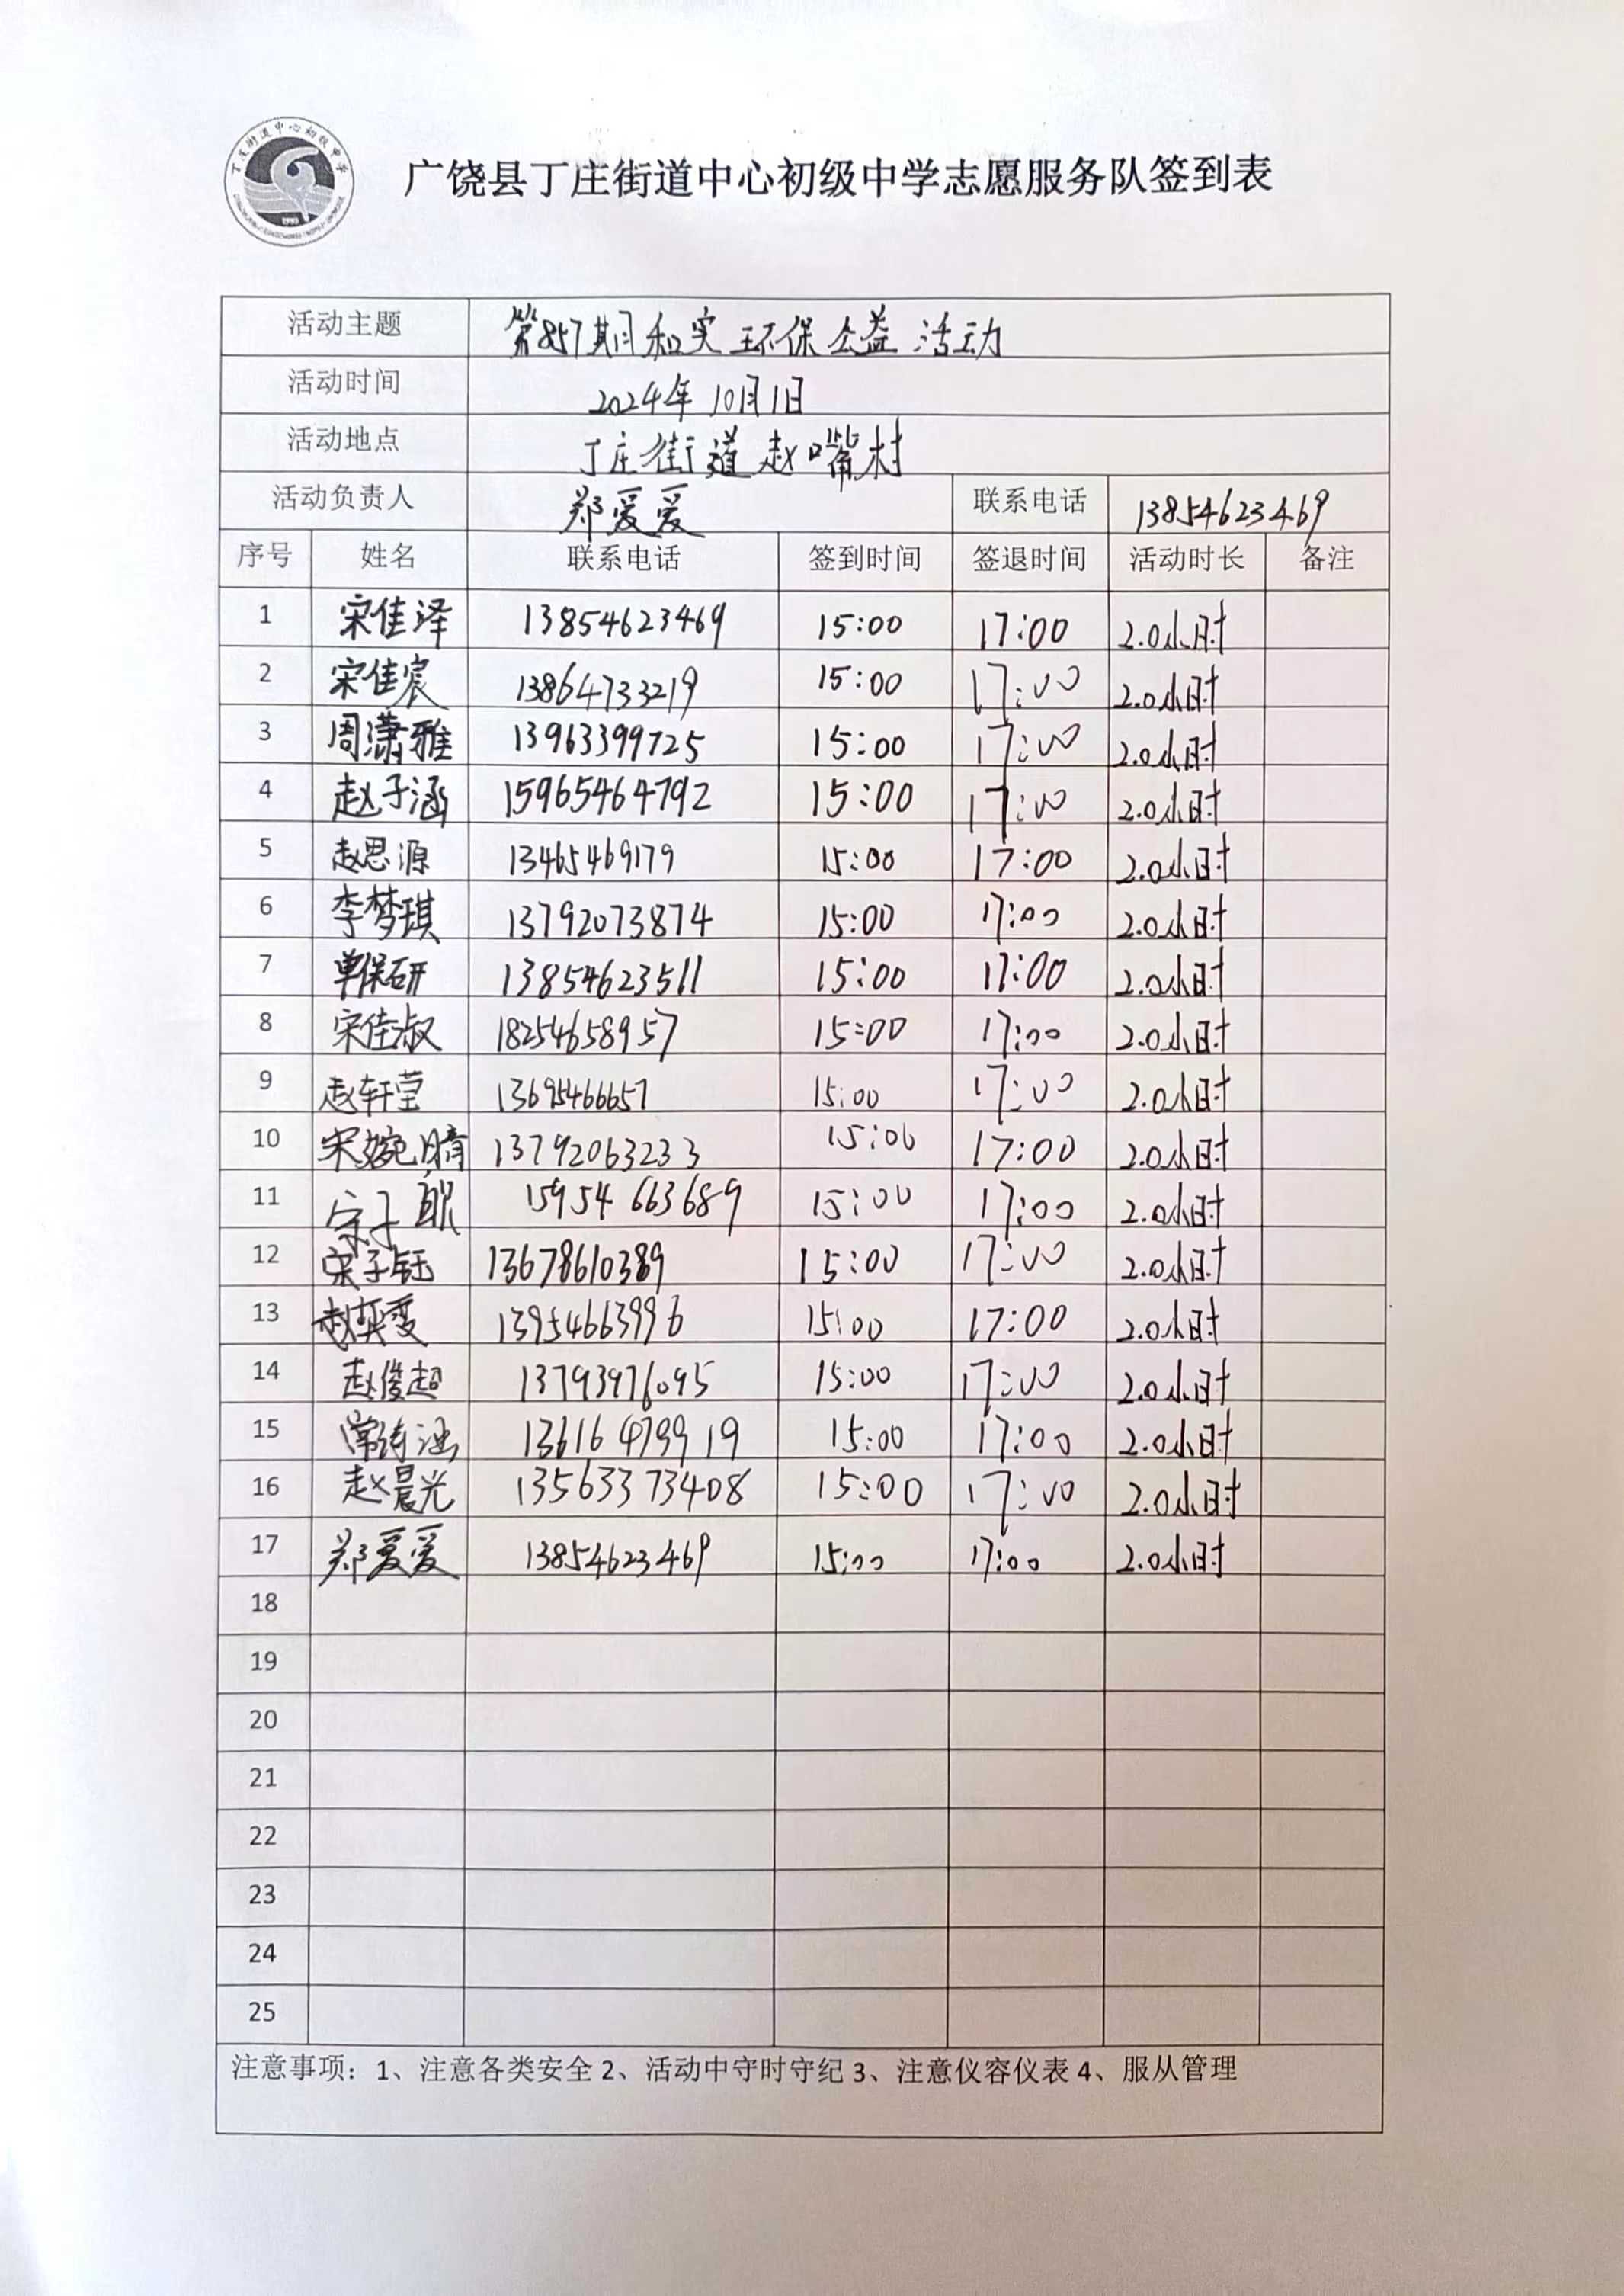 丁庄街道中心初级中学
1993
广饶县丁庄街道中心初级中学志愿服务队签到表
活动主题 第857期和实环保公益活动
活动时间 2024年10月1日
活动地点 丁庄街道赵嘴村
活动负责人 郑爱爱 联系电话 13854623469
序号 姓名 联系电话 签到时间 签退时间 活动时长 备注
1 宋佳泽 13854623469 15:00 17:00 2.0小时
2 宋佳宸 13864733219 15:00 17:00 2.0小时
3 周潇雅 13963399725 15:00 17:00 2.0小时
4 赵子涵 15965464792 15:00 17:00 2.0小时
5 赵思源 13465469179 15:00 17:00 2.0小时
6 李梦琪 13792073874 15:00 17:00 2.0小时
7 单保研 13854623511 15:00 17:00 2.0小时
8 宋佳淑 18254658957 15:00 17:00 2.0小时
9 赵轩莹 13695466657 15:00 17:00 2.0小时
10 宋婉晴 13792063233 15:00 17:00 2.0小时
11 宋子 15954663689 15:00 17:00 2.0小时
12 宋子钰 13678610389 15:00 17:00 2.0小时
13 赵奕雯 13954663996 15:00 17:00 2.0小时
14 赵俊超 13793976095 15:00 17:00 2.0小时
15 常诗涵 13616479919 15:00 17:00 2.0小时
16 赵晨光 13563373408 15:00 17:00 2.0小时
17 郑爱爱 13854623469 15:00 17:00 2.0小时
18
19
20
21
22
23
24
25
注意事项：1、注意各类安全 2、活动中守时守纪 3、注意仪容仪表 4、服从管理